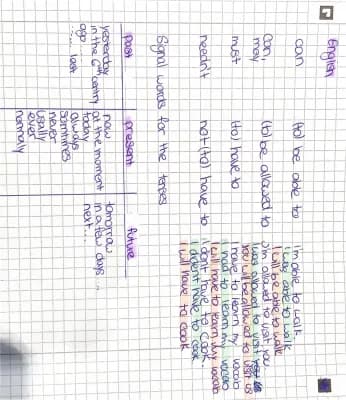 English
can (to) be able to
I'm able to walk.
I was able to walk.
I will be able to walk
can, may (to) be allowed to
I'm allowed to visit you
I was allowed to visit
You will be allowed to visit us
must (to) have to
I have to learn my vocabs
I had to learn my vocabs
I will have to learn my vocabs
needn't not (to) have to
I don't have to cook.
I didn't have to cook.
I will have to cook
Signal words for the tenses
past present future
yesterday now tomorrow
in the 6th century at the moment in a few days ..
ago today next...
... last always
sometimes
never
ever
usually
normally